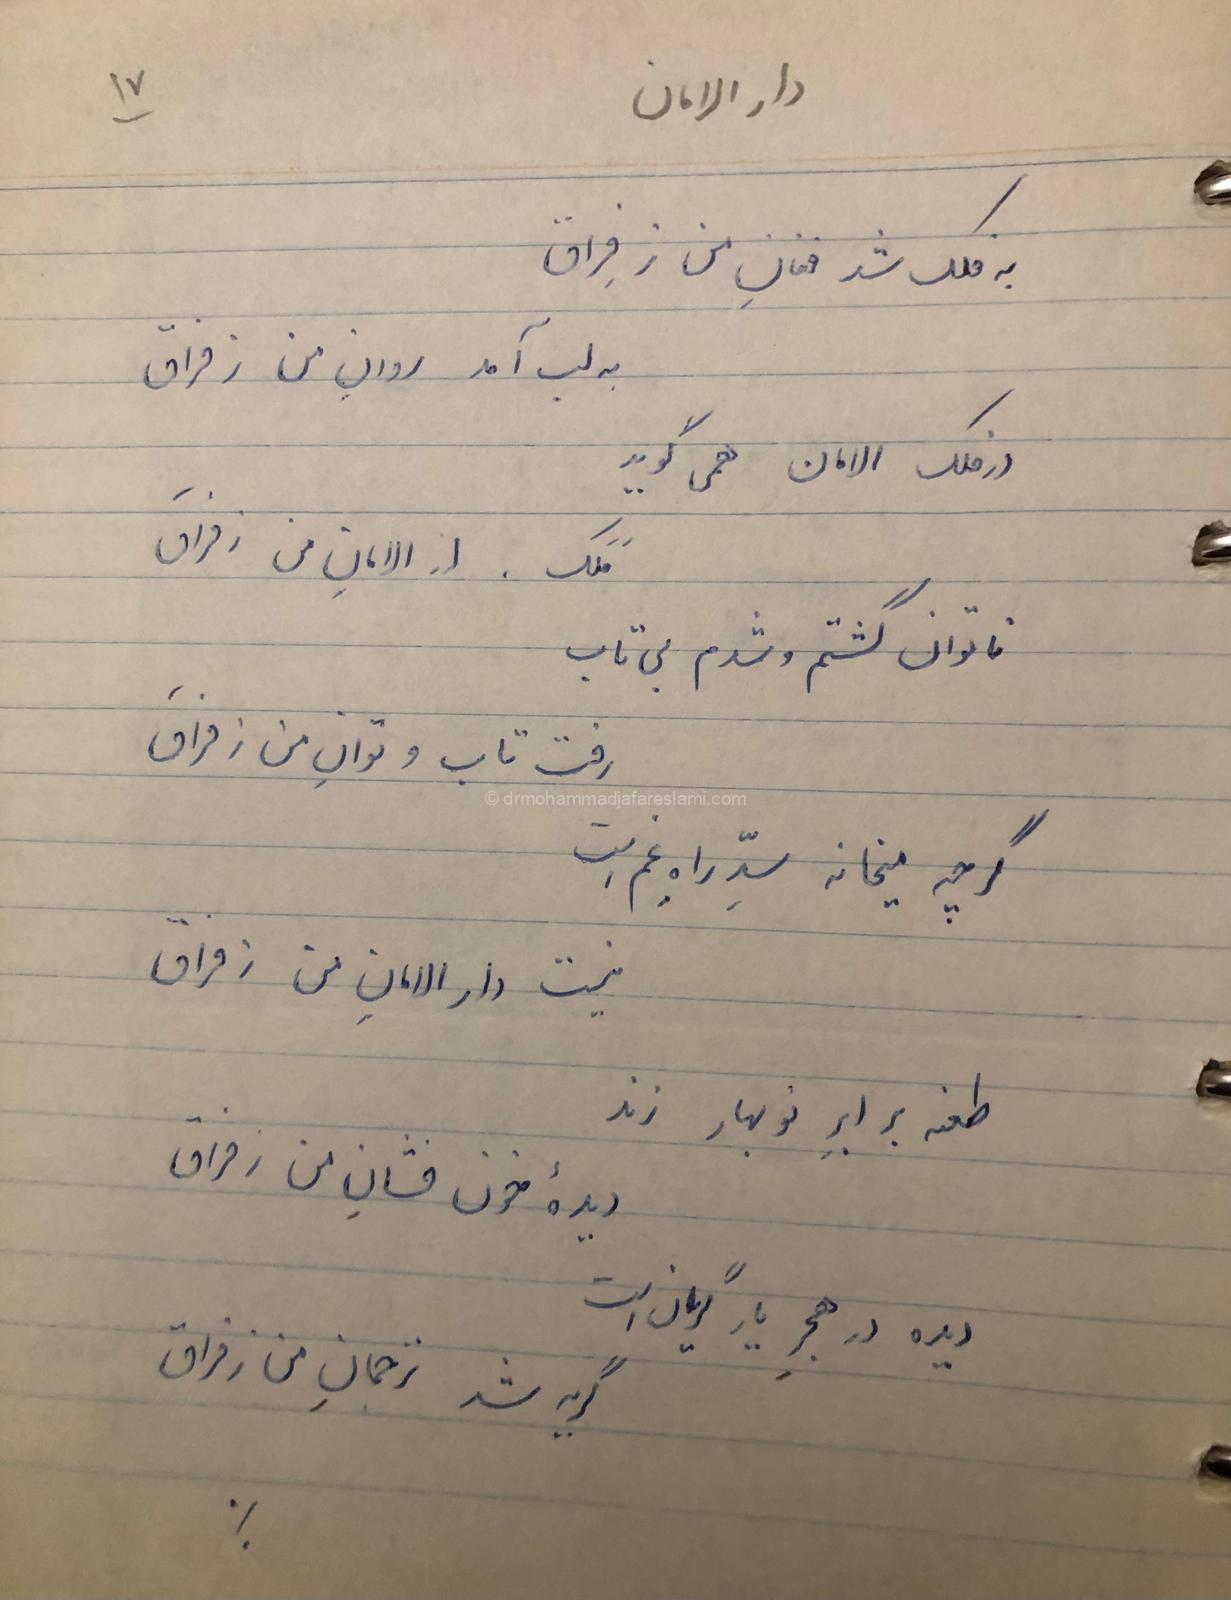 دار الامان
۱۷
به فلک شد فغانِ من ز فِراق
به لب آمد روانِ من ز فراق
در فلک الامان همی گوید
مَلَک از الامانِ من ز فراق
ناتوان گشتم و شدم بی تاب
رفت تاب و توانِ من ز فراق
© drmohammadjafareslami.com
گرچه میخانه سدِّ راهِ غم است
نیست دار الامانِ من ز فراق
طعنه بر ابرِ نوبهار زند
دیدهٔ خون فشانِ من ز فراق
دیده در هجرِ یار گریان است
گریه شد ترجمانِ من ز فراق